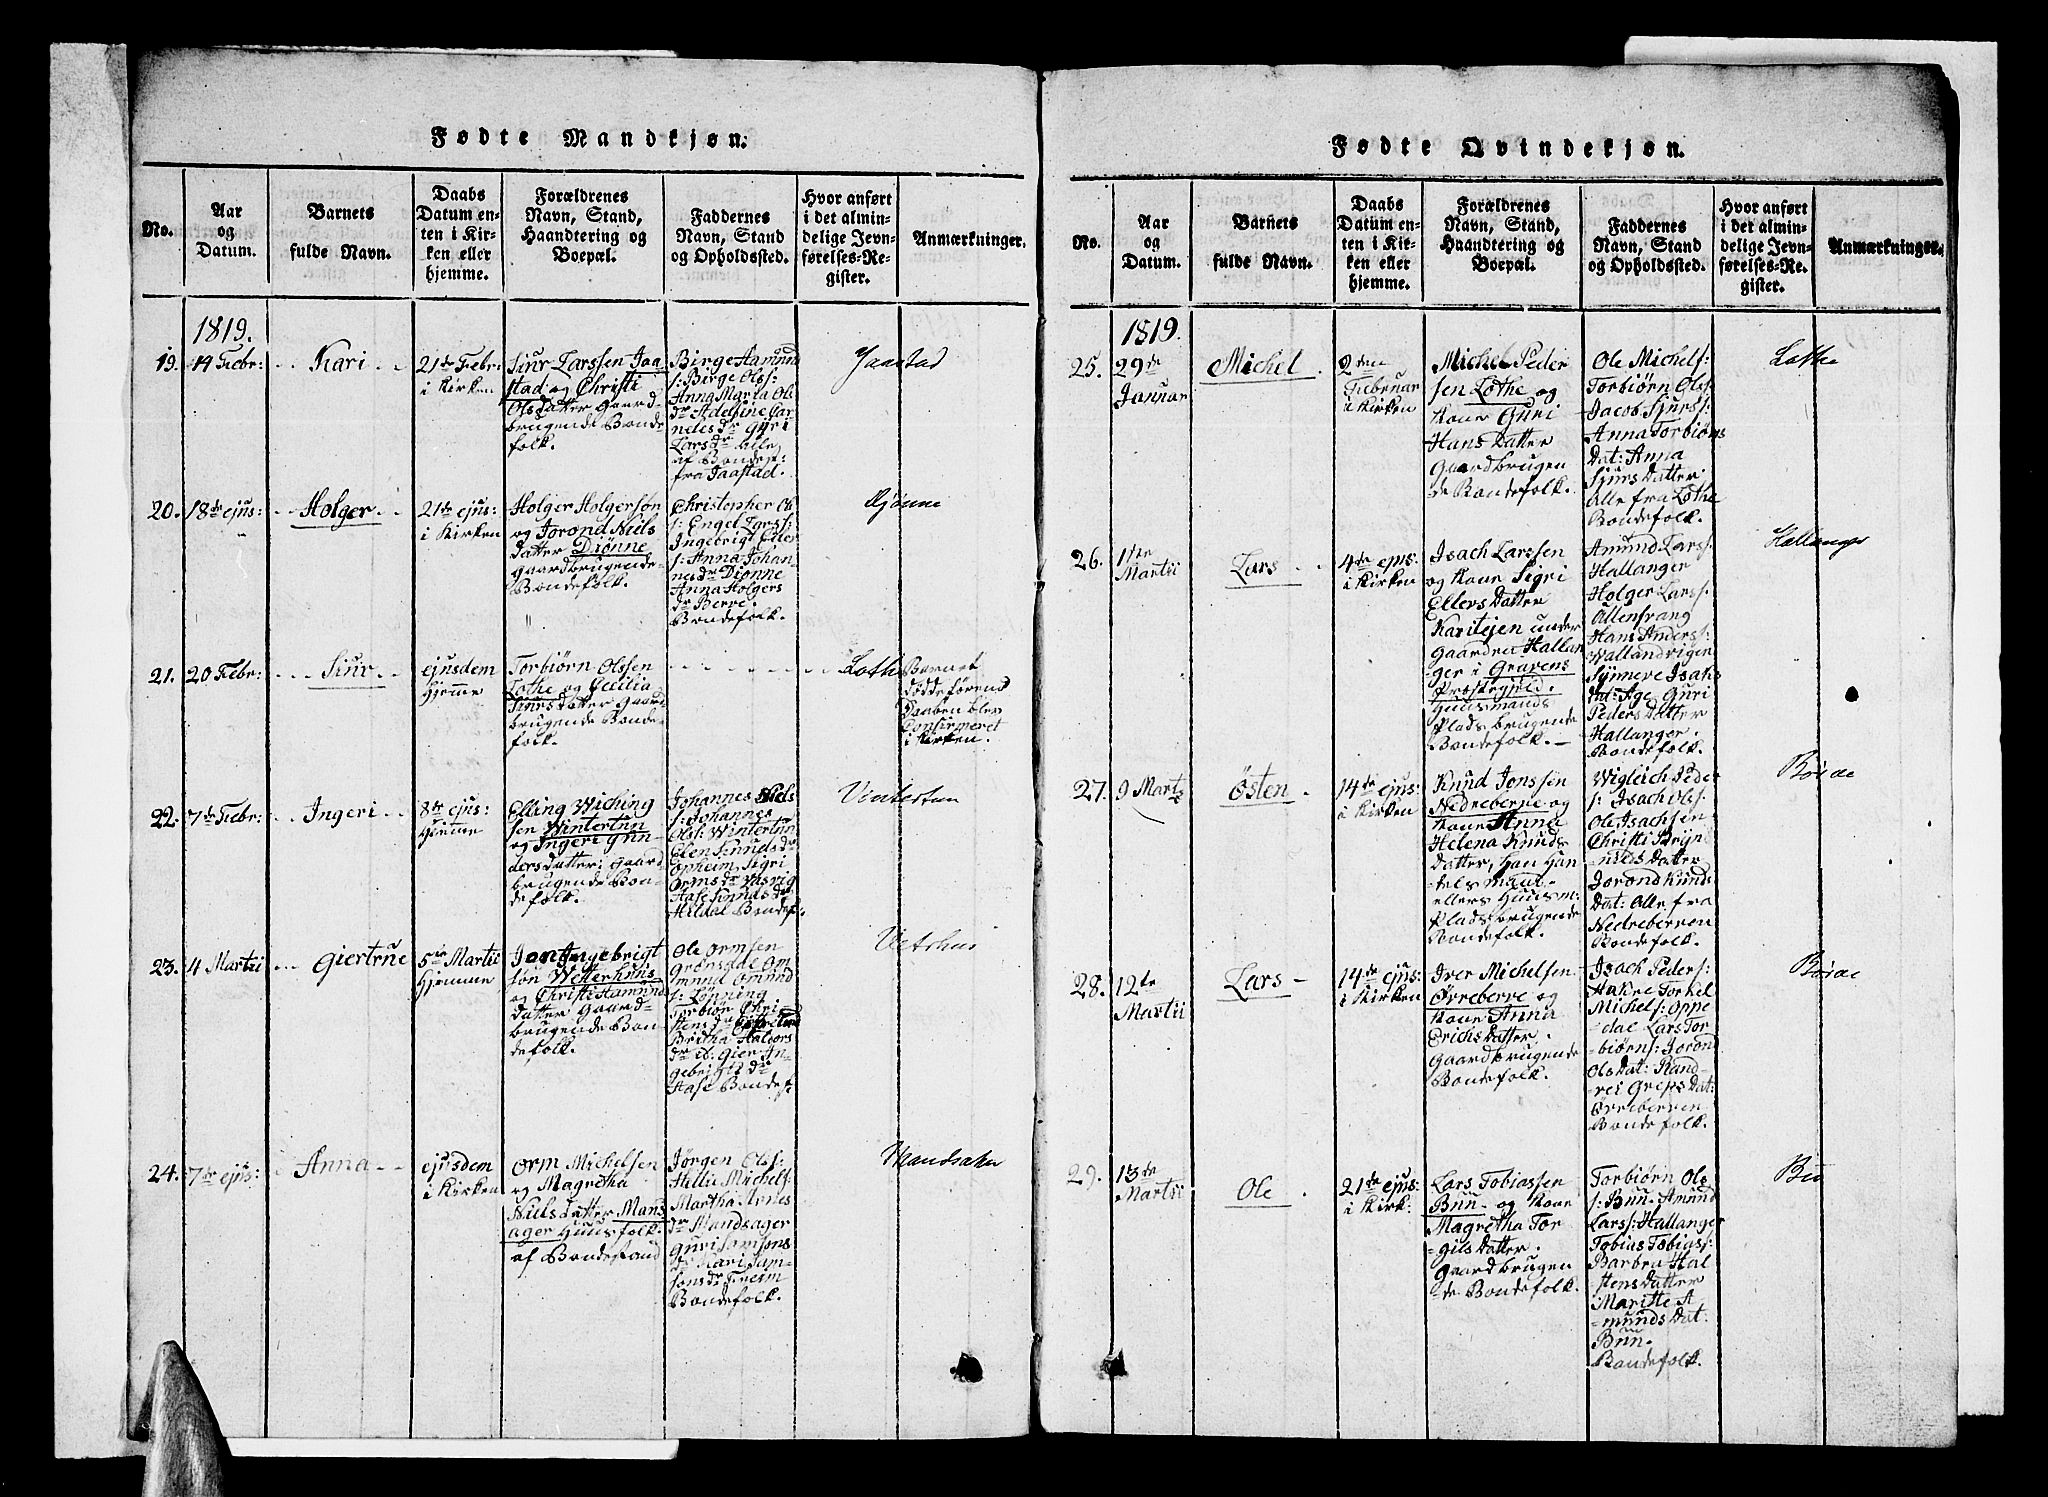 Fødte Mandkjøn.
No.
Aar
og
Datum.
Barnets
fulde Navn.
Daabs
Datum en-
ten i Kir-
ken eller
hjemme.
Forældrenes
Navn, Stand,
Haandtering og
Boepæl.
Faddernes
Navn, Stand
og Opholdssted.
Hvor anført
i det almin-
delige Jevn-
førelses-Re-
gister.
Anmærkninger.
1819.
19.
14 Febr:
Kari
21de Febr:
i Kirken
Siur Larssen Jaa
stad og Christi
Olsdatter Gaard-
brugende Bonde-
folk.
Birge Aamund
s: Birge Ols:
Anna Maria Ols
dr Adelsine Cor
nelisdr Guri
Larsdr alle
af Bondest:
fra Jaastad.
Jaastad
20.
18de ejus:
Holger
21de ejus:
i Kirken
Holger Holgersøn
og Jorond Niels
datter Diønne
gaardbrugende
Bondefolk.
Christopher Ols
s: Engel Larss:
Ingebrigt Eller
s: Anna Johan
nesdr Diønne
Anna Holgers
dr Berve.
Bondefolk.
Djønne
21.
20 Febr:
Siur
ejusdem
Hjemme
Torbiørn Olssen
Lothe og Cecilia
Siursdatter Gaard
brugende Bonde-
folk.
Lothe
Barnet
døde førend
Daaben blev
Confirmeret
i Kirken.
22.
7de Febr:
Ingeri
8de ejus:
Hjemme
Elling Wiching
sen Wintertun
og Ingeri Gun
dersdatter; gaard
brugende Bon-
defolk.
Johannes Niels
s: Johannes
Ols: Wintertun
Elen Knudsdr
Opheim Sigri
Ormsdr
Aase Knudsdr
Hildal Bondef:
Vintertun
23.
4 Martii
Giertrue
5te Martii
Hjemme
Jon Ingebrigt
søn Wetterhuus
og Christi Aamund
datter Gaard-
brugende Bon
defolk.
Ole Ormsen
Grønsdal Om
mund Omund
s: Lønning
Torbiør Chri-
stensdr
Britha Haldors
dr ib: Gier In-
gebrigtsdr
Aase Bondef:
Vetrhus
24.
7de ejus:
Anna
ejusdem
i Kirken
Orm Michelsen
og Magretha
Nielsdatter Mans
ager Huusfolk.
af Bondestand
Jørgen Ols:
Helie Michels:
Martha Arnes
dr Mandsager
Guri Samsons
dr Kari Sam-
sonsdr Freim
Bondefolk.
Mandsaker
Fødte Qvindekjøn.
No.
Aar
og
Datum.
Barnets
fulde Navn.
Daabs
Datum en-
ten i Kir-
ken eller
hjemme.
Forældrenes
Navn, Stand,
Haandtering og
Boepæl.
Faddernes
Navn, Stand
og Opholdssted.
Hvor anført
i det almin-
delige Jevn-
førelses-Re-
gister.
Anmærkninger.
1819.
25.
29de
Januar
Michel
2den
Februar
i Kirken
Michel Peder
sen Lothe og
Kone Guri
Hans Datter
Gaardbrugen
de Bondefolk.
Ole Michels:
Torbiørn Ols:
Jacob Sjurs:
Anna Torbiørns
Dat: Anna
Sjurs Datter.
Alle fra Lothe
Bondefolk.
Lothe
26.
1ste
Martii
Lars
4de ejus:
i Kirken
Isach Larssen
og Kone Sigri
Ellers Datter
Karitejen under
Gaarden Hallan
ger i Gravens
Præstegield.
Huusmands
Plads brugende
Bondefolk.
Amund Lars:
Hallanger
Holger Lars:
Ållensvang
Hans Anders:
Wallandviger
Synneve Isaks
dat: Age Guri
Peders Datter
Hallanger.
Bondefolk.
Hallanger
27.
9 Marts
Østen
14de ejus:
i Kirken
Knud Jonssen
Nedreberve og
Kone Anna
Helena Knuds
Datter, Han Han
delsmand
ellers Huusm:
Plads brugende
Bondefolk.
Wigleich Peder
s: Isach Ols:
Ole Isachsen
Christi Bryn
nilds Datter
Jorond Knuds
Dat: Alle fra
Nedreberven
Bondefolk.
Børve
28.
12te
Martii
Lars
14de ejus:
i Kirken
Iver Michelsen
Ørreberve og
Kone Anna
Erichs Datter.
Gaardbrugende
Bondefolk.
Isach Peders:
Hakre Torkel
Michels: Oppe
dal Lars Tor
biørns: Joron
Ols Dat: Rand-
vei Greps Dat:
Ørreberven
Bondefolk.
Børve
29.
13de
Martii
Ole
21de ejus:
i Kirk:
Lars Tobiassen
Buu og Kone
Magretha Tor
gils Datter.
Gaardbrugen
de Bondefolk.
Torbiørn Ols
s: Buu. Amund
Lars: Hallanger
Tobias Tobias:
Barbra Hal
stens Datter
Maritte A
munds Dat:
Buu.
Bondefolk.
Bu